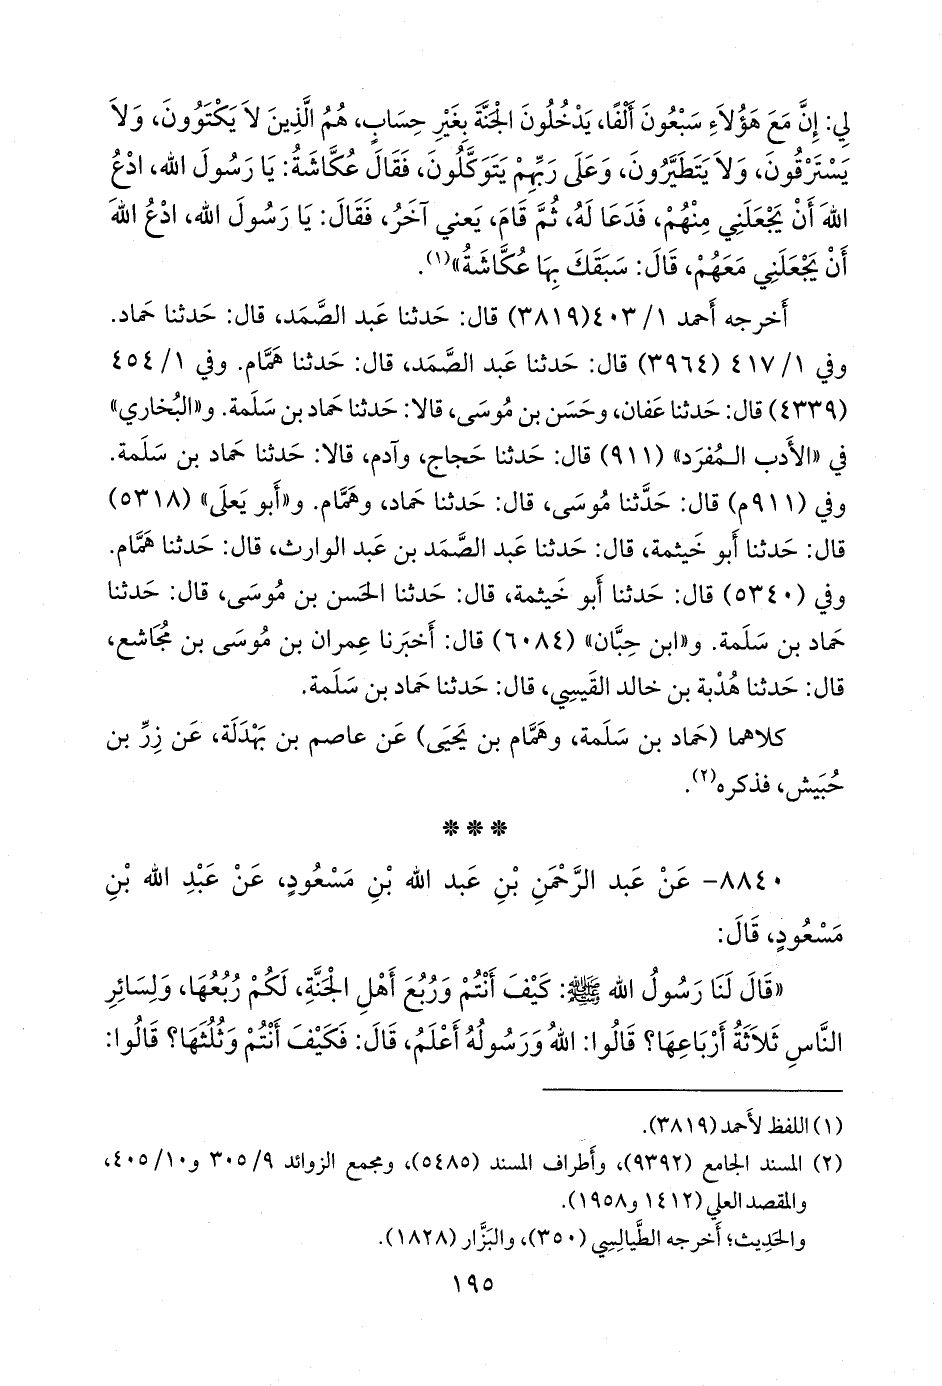 لِي: إِنَّ مَعَ هَؤُلاَءِ سَبْعُونَ أَلْفًا، يَدْخُلُونَ الْجَنَّةَ بِغَيْرِ حِسَابٍ، هُمُ الَّذِينَ لاَ يَكْتَوُونَ، وَلاَ
يَسْتَرْقُونَ، وَلاَ يَتَطَيَّرُونَ، وَعَلَى رَبِّهِمْ يَتَوَكَّلُونَ، فَقَالَ عُكَّاشَةُ: يَا رَسُولَ الله، ادْعُ
اللهَ أَنْ يَجْعَلَنِي مِنْهُمْ، فَدَعَا لَهُ، ثُمَّ قَامَ، يَعني آخَرُ، فَقَالَ: يَا رَسُولَ الله، ادْعُ اللهَ
أَنْ يَجْعَلَنِي مَعَهُمْ، قَالَ: سَبَقَكَ بِهَا عُكَّاشَةُ»(١).
أَخرجه أَحمد ١/ ٤٠٣(٣٨١٩) قال: حَدثنا عَبد الصَّمَد، قال: حَدثنا حَماد.
وفي ١/ ٤١٧ (٣٩٦٤) قال: حَدثنا عَبد الصَّمَد، قال: حَدثنا هَمَّام. وفي ١/ ٤٥٤
(٤٣٣٩) قال: حَدثنا عَفان، وحَسَن بن مُوسَى، قالا: حَدثنا حَماد بن سَلَمة. و«البُخاري»
في «الأَدب الـمُفرَد» (٩١١) قال: حَدثنا حَجاج، وآدم، قالا: حَدثنا حَماد بن سَلَمة.
وفي (٩١١م) قال: حَدَّثنا مُوسَى، قال: حَدثنا حَماد، وهَمَّام. و«أَبو يَعلَى» (٥٣١٨)
قال: حَدثنا أَبو خَيثمة، قال: حَدثنا عَبد الصَّمَد بن عَبد الوارث، قال: حَدثنا هَمَّام.
وفي (٥٣٤٠) قال: حَدثنا أَبو خَيثمة، قال: حَدثنا الحَسن بن مُوسَى، قال: حَدثنا
حَماد بن سَلَمة. و«ابن حِبَّان» (٦٠٨٤) قال: أَخبَرنا عِمران بن مُوسَى بن مُجَاشع،
قال: حَدثنا هُدْبة بن خالد القَيسِي، قال: حَدثنا حَماد بن سَلَمة.
كلاهما (حَماد بن سَلَمة، وهَمَّام بن يَحيَى) عَن عاصم بن بَهْدَلَة، عَن زِرِّ بن
حُبَيش، فذكره(٢).
***
٨٨٤٠- عَنْ عَبد الرَّحْمَنِ بْنِ عَبد الله بْنِ مَسْعُودٍ، عَنْ عَبْدِ الله بْنِ
مَسْعُودٍ، قَالَ:
«قَالَ لَنَا رَسُولُ الله ﷺ: كَيْفَ أَنْتُمْ وَرُبُعَ أَهْلِ الْجَنَّةِ، لَكُمْ رُبُعُهَا، وَلِسَائِرِ
النَّاسِ ثَلاَثَةُ أَرْبَاعِهَا؟ قَالُوا: اللهُ وَرَسُولُهُ أَعْلَمُ، قَالَ: فَكَيْفَ أَنْتُمْ وَثُلُثَهَا؟ قَالُوا:
(١) اللفظ لأَحمد (٣٨١٩).
(٢) المسند الجامع (٩٣٩٢)، وأَطراف المسند (٥٤٨٥)، ومجمع الزوائد ٩/ ٣٠٥ و١٠/ ٤٠٥،
والمقصد العلي (١٤١٢ و١٩٥٨).
والحَدِيث؛ أَخرجه الطَّيالِسِي (٣٥٠)، والبَزَّار (١٨٢٨).
١٩٥